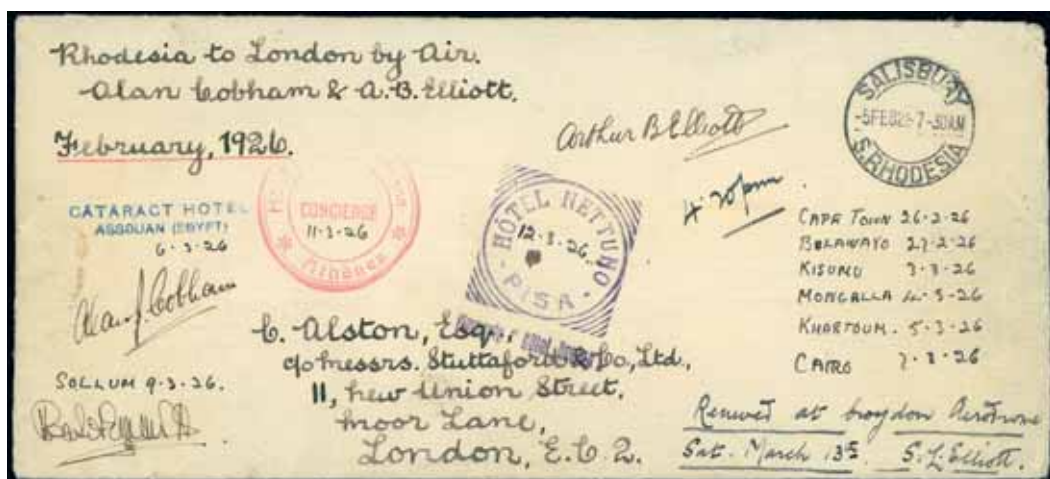 Rhodesia to London by Air.
Alan Cobham & A.B. Elliott.
February, 1926.
Arthur B Elliott
SALISBURY
-5FEB26-7-30AM
S. RHODESIA
4.20pm
CATARACT HOTEL
ASSOUAN (EGYPT)
6-3-26
CONCIERGE
11-3-26
Athènes
HÔTEL NETTUNO
12-3-26.
PISA
CAPE TOWN 26-2-26
BULAWAYO 27-2-26
KISUMU 3-3-26
MONGALLA 4-3-26
KHARTOUM. 5-3-26
CAIRO 7-3-26
Alan J. Cobham
C. Alston, Esq.,
c/o Messrs. Stuttaford & Co, Ltd.,
11, New Union Street,
Moor Lane,
London, E.C.2.
SOLLUM 9-3-26.
at Croydon Aerodrome
Sat. March 13th S.L. Elliott.